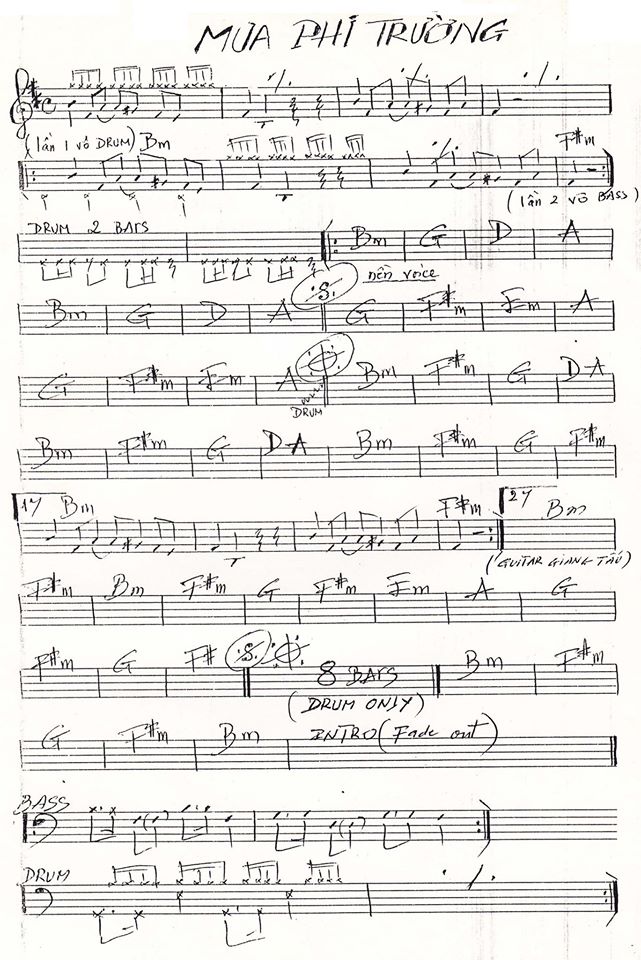 MƯA PHI TRƯỜNG
(lần 1 vô DRUM) Bm F#m
(lần 2 vô BASS)
DRUM 2 BARS Bm G D A
nền voice
Bm G D A G F#m Em A
G F#m Em A Bm F#m G D-A
DRUM
Bm F#m G D-A Bm F#m G F#m
1/ Bm F#m 2/ Bm
(GUITAR GIANG TẤU)
F#m Bm F#m G F#m Em A G
F#m G F# 8 BARS Bm F#m
(DRUM ONLY)
G F#m Bm INTRO (Fade out)
BASS
DRUM